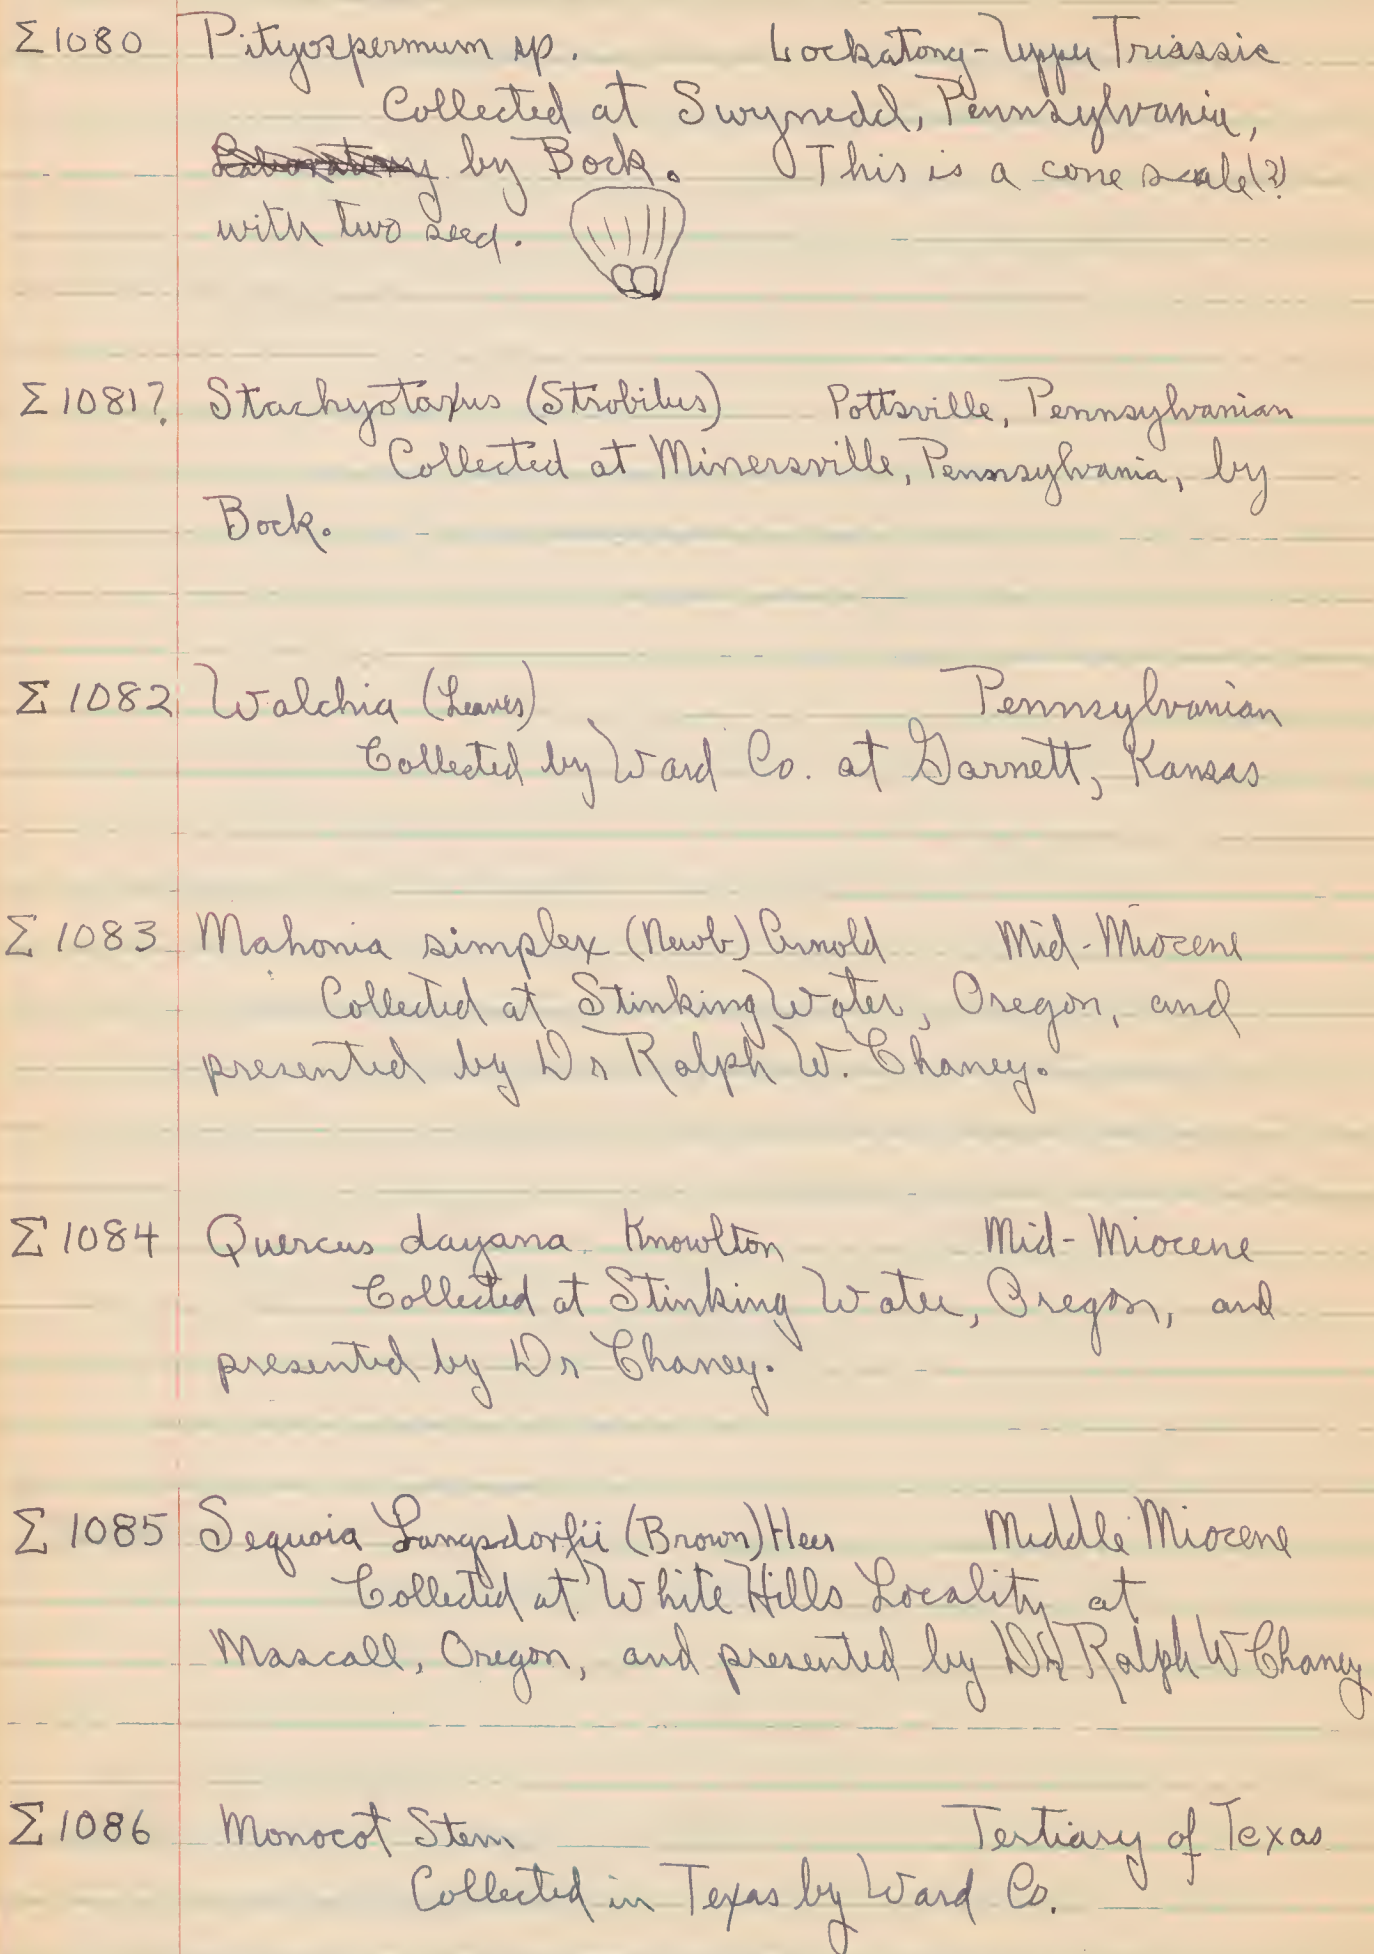 Σ1080 Pityospermum sp. Lockatong-Upper Triassic
Collected at Gwynedd, Pennsylvania,
Laboratory by Bock. This is a cone scale(?)
with two seed.
Σ1081? Stachyotaxus (Strobilus) Pottsville, Pennsylvanian
Collected at Minersville, Pennsylvania, by
Bock.
Σ 1082 Walchia (Leaves) Pennsylvanian
Collected by Ward Co. at Garnett, Kansas
Σ 1083 Mahonia simplex (Newb) Arnold Mid-Miocene
Collected at Stinking Water, Oregon, and
presented by Dr Ralph W. Chaney.
Σ 1084 Quercus dayana Knowlton Mid-Miocene
Collected at Stinking Water, Oregon, and
presented by Dr Chaney.
Σ 1085 Sequoia Langsdorfii (Brown) Heer Middle Miocene
Collected at White Hills Locality at
Mascall, Oregon, and presented by Dr Ralph W Chaney
Σ1086 Monocot Stem Tertiary of Texas
Collected in Texas by Ward Co.